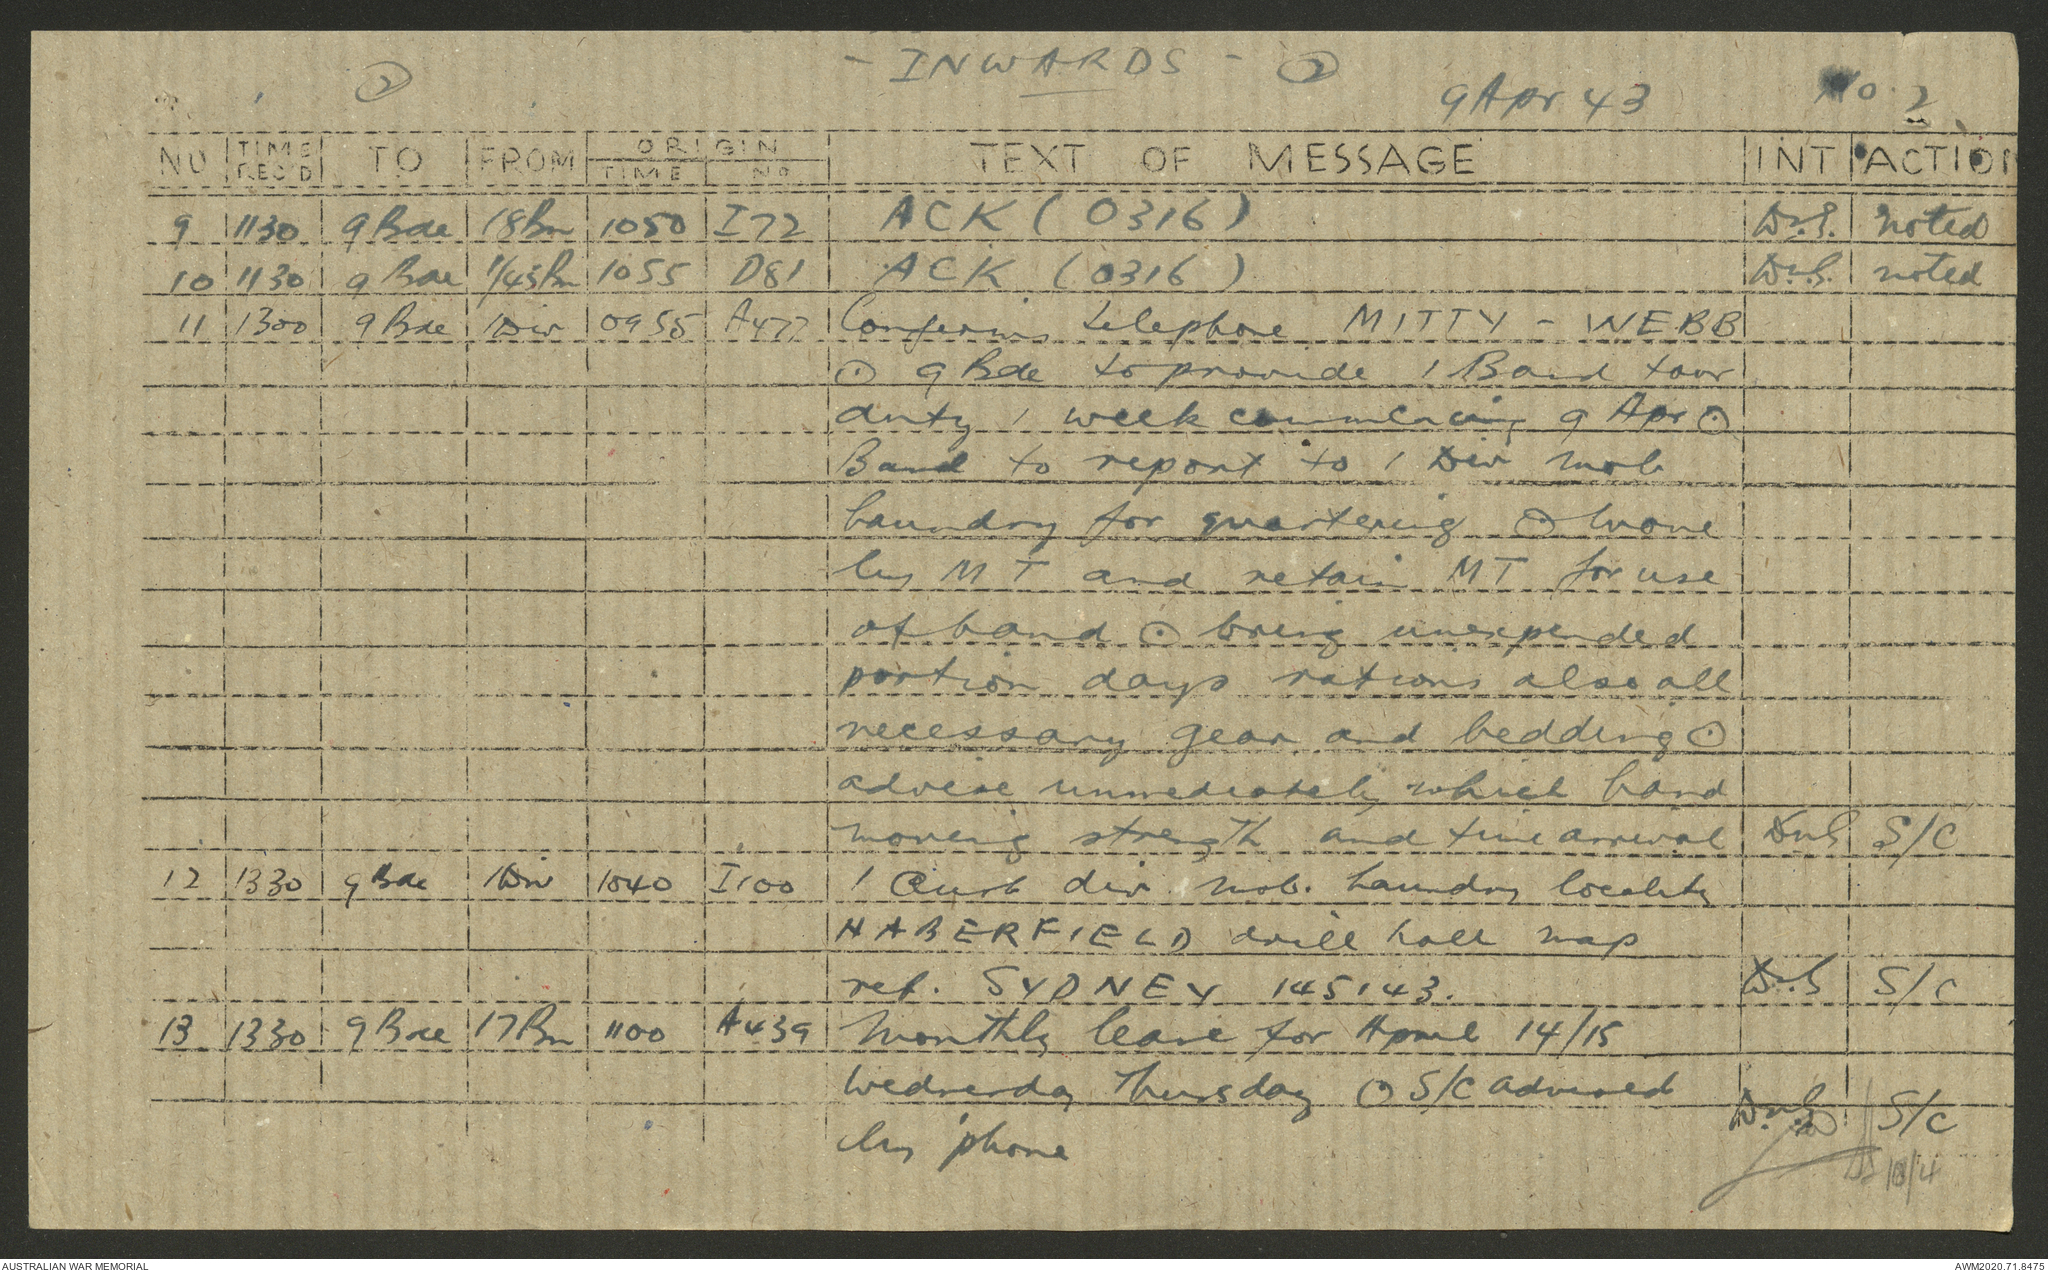 - INWARDS - 2
2
9 Apr 43
No. 2
NO TIME REC'D TO FROM ORIGIN TIME NO TEXT OF MESSAGE INT ACTION
9 1130 9 Bde 18 Bn 1050 I72 ACK (0316) noted
10 1130 9 Bde 1/45 Bn 1055 D81 ACK (0316) noted
11 1300 9 Bde 1 Div 0955 A477 Confirming telephone MITTY - WEBB
⊙ 9 Bde to provide 1 Band tour
duty 1 week commencing 9 Apr ⊙
Band to report to 1 Div mob
laundry for quartering ⊙ move
by MT and retain MT for use
of band ⊙ bring unexpended
portion days rations also all
necessary gear and bedding ⊙
advise immediately which band
moving strength and time arrival S/C
12 1330 9 Bde 1 Div 1040 I100 1 Aust div mob. laundry locality
HABERFIELD drill hall map
ref. SYDNEY 145143. S/C
13 1330 9 Bde 17 Bn 1100 A439 Monthly leave for April 14/15
Wednesday Thursday ⊙ S/C advised
by 'phone S/C
10/4
AUSTRALIAN WAR MEMORIAL
AWM2020.71.8475